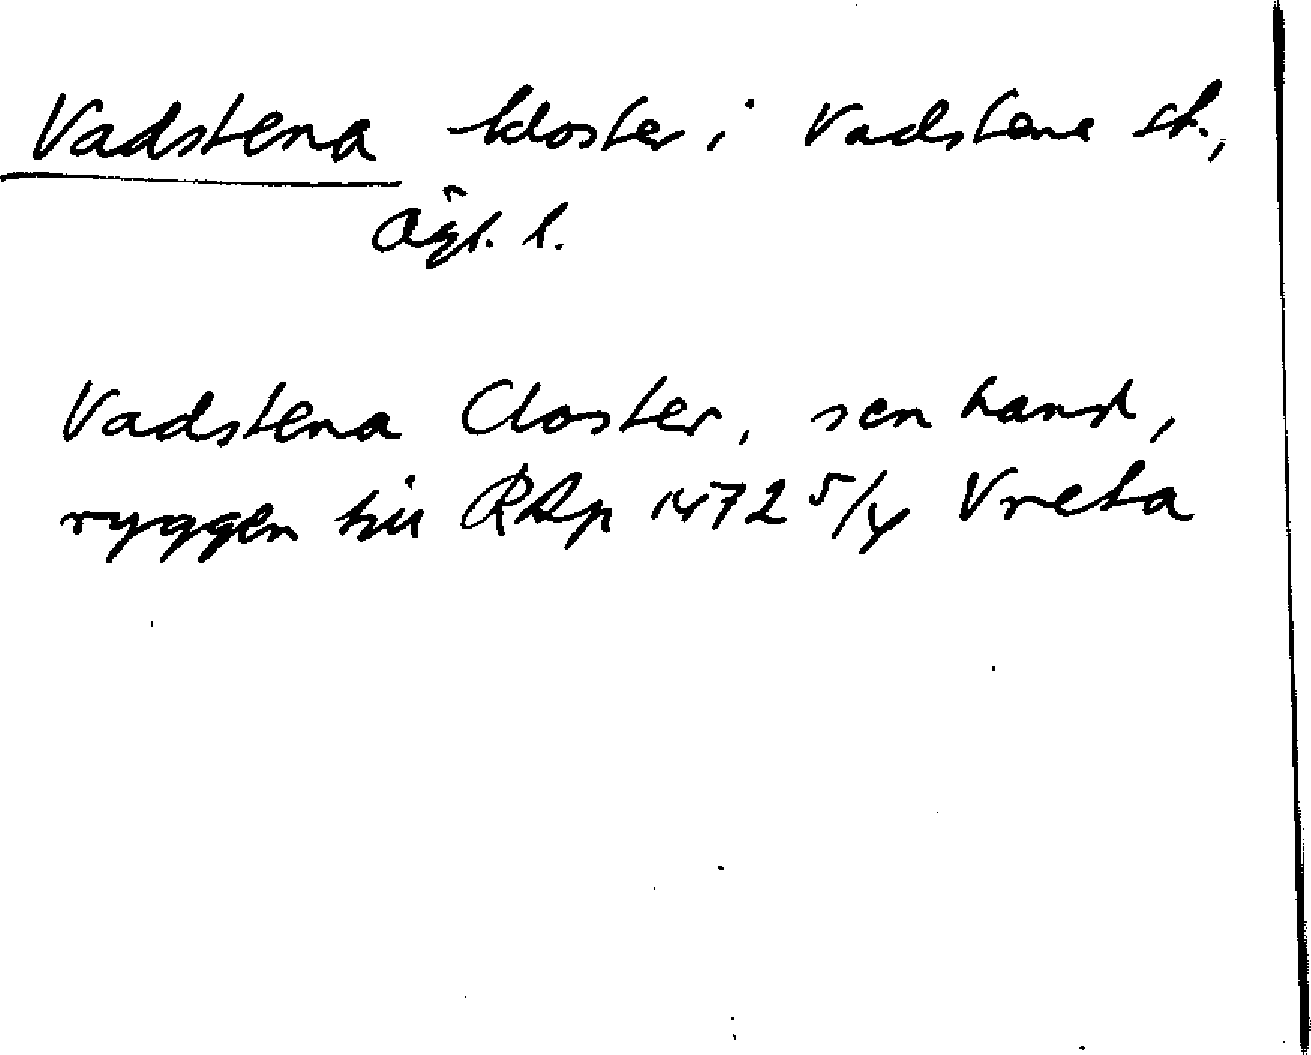 Vadstena kloster i Vadstena sk.,
Ögl. l.
Vadstena Closter, sen hand,
ryggen till RAp 1472 5/4 Vreta